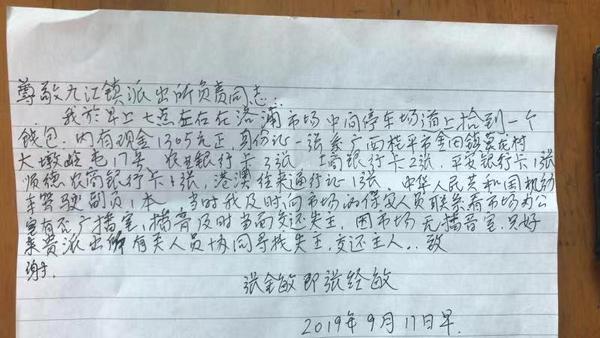 尊敬九江镇派出所负责同志:
我于早上七点左右在洛浦市场中间停车场道上拾到一个
钱包.内有现金1305元正,身份证一张系广西桂平市金田镇
大墩岐屯17号 农业银行卡3张 工商银行卡2张,平安银行卡1张
顺德农商银行卡 张,港澳往来通行证1张.中华人民共和国机动
车驾驶副页1本. 当时我及时向市场的保安人员联系看市场办公
室有否广播室,播音及时当面交还失主,因市场无播音室.只好
来贵派出所有关人员协同寻找失主,交还主人..致
谢.
张金敏即张经敏
2019年9月11日早.